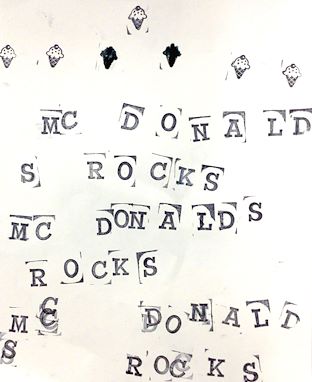 MC DONALD
S ROCKS
MC DONALDS
ROCKS
MC DONALD
S
ROCKS